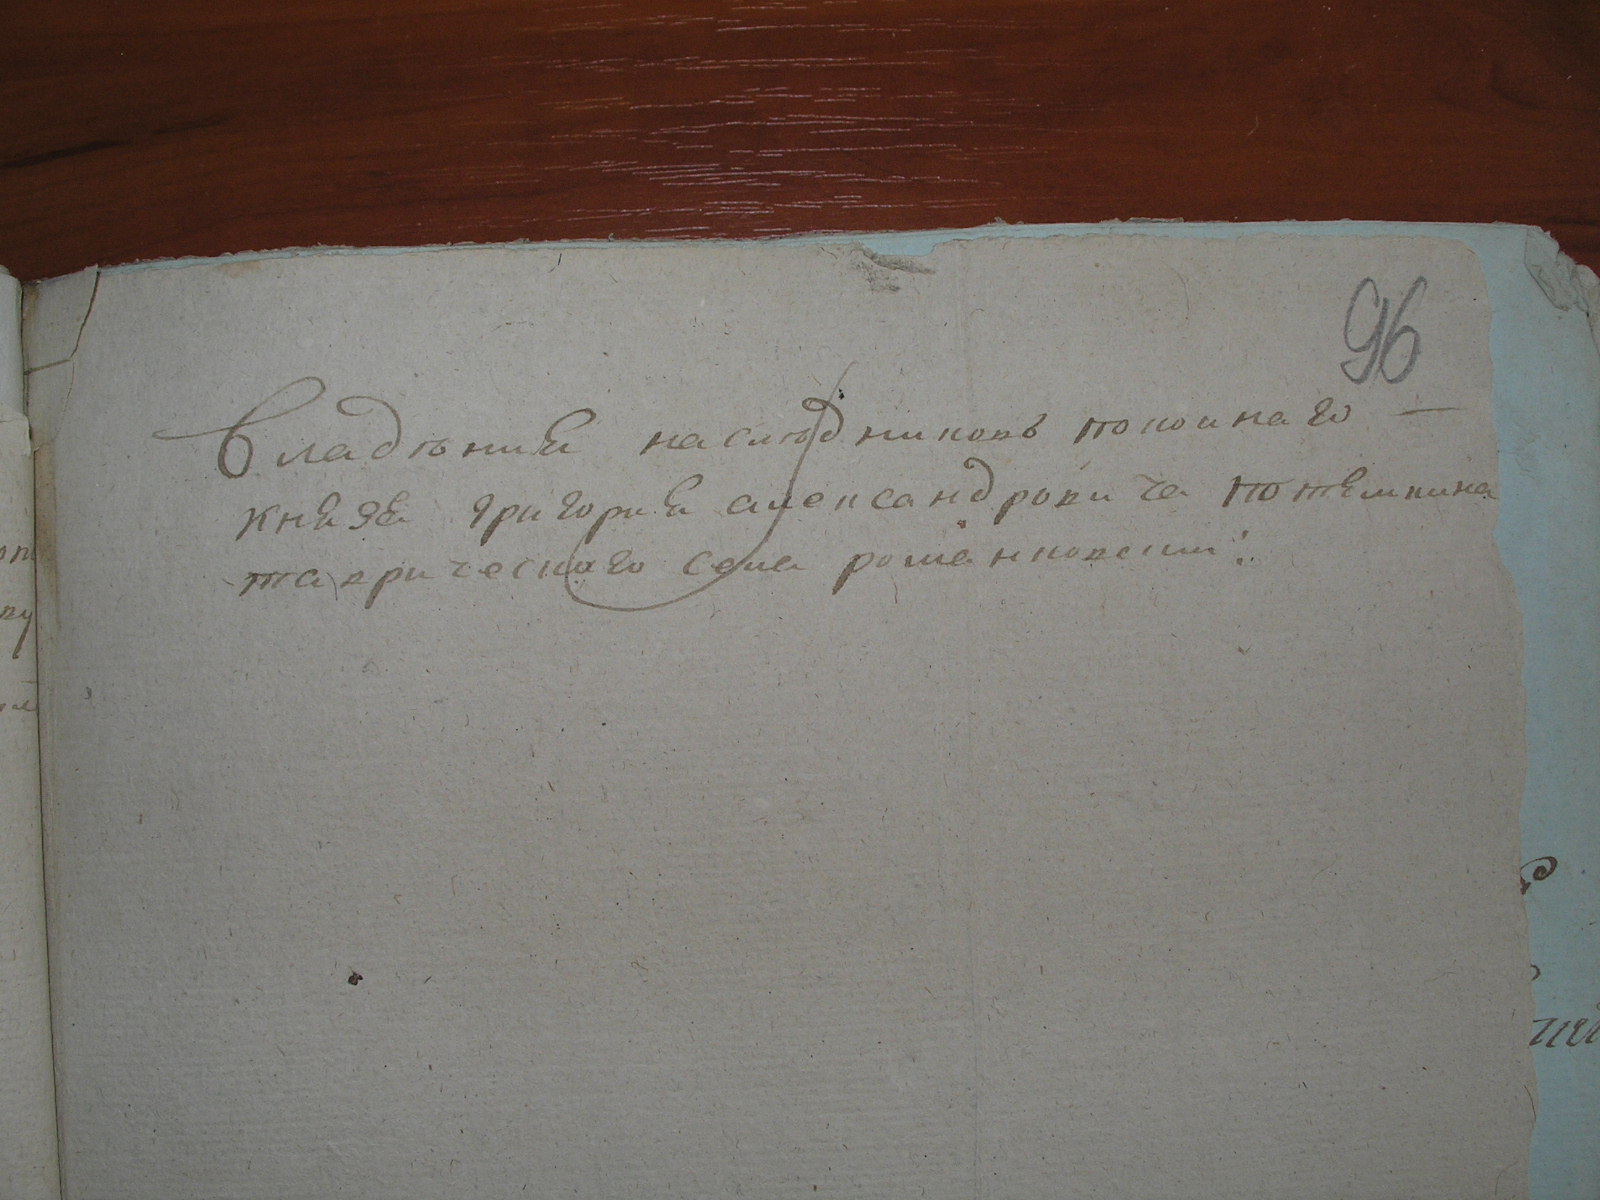 96
Владѣния наслѣдниковъ покоинаго —
князя григория александровича потемкина
таврического села романковки: